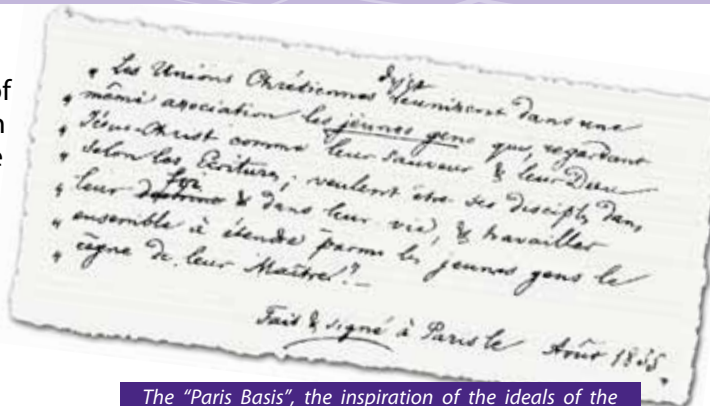 of
n
e
„ Les Unions Chrétiennes
désir
réunissent dans une
„ même association les jeunes gens qui, regardant
„ Jésus-Christ comme leur Sauveur & leur Dieu
„ selon les Écritures, veulent être ses disciples dans
foi
„ leur doctrine & dans leur vie, & travailler
„ ensemble à étendre parmi les jeunes gens le
„ règne de leur Maître."_
Fait & signé à Paris le Août 1855.
The “Paris Basis”, the inspiration of the ideals of the